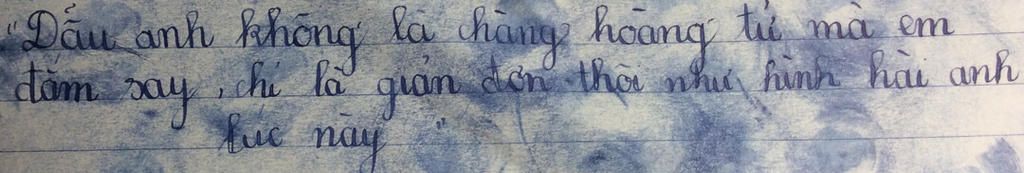 "Dẫu anh không là chàng hoàng tử mà em
đắm say, chỉ là giản đơn thôi như hình hài anh
lúc này"